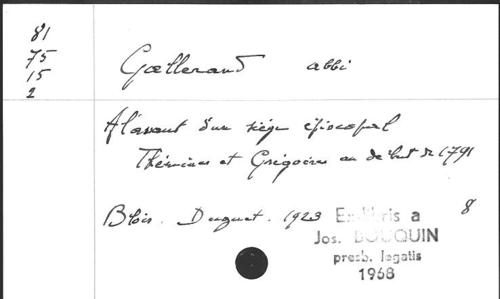 81
75
15
2
Gallerand abbé
A l'avant d'un siège épiscopal
Thémines et Grégoire au début de 1791
Blois. Duguet. 1923 8
Ex-libris a
Jos. BOUQUIN
presb. legatis
1968